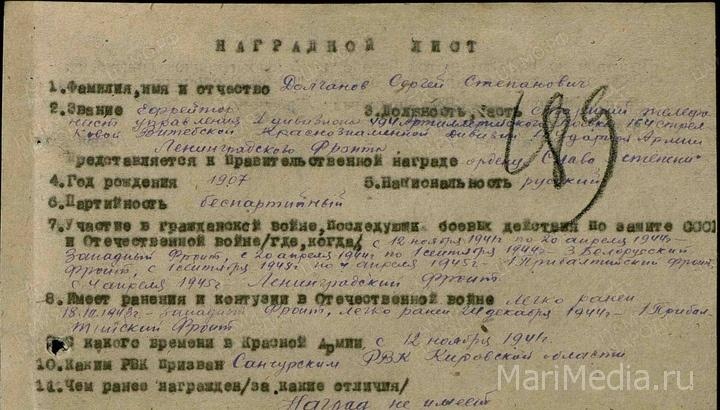 НАГРАДНОЙ ЛИСТ
1.Фамилия,имя и отчество Долганов Сергей Степанович
2.Звание Ефрейтор 3.Должность,часть старший телефо
нист управления дивизиона 494 Артиллерийского полка 164 стрел
ковой Витебской Краснознаменной дивизии Ударной Армии
Ленинградского Фронта
Представляется к Правительственной награде ордену Слава степени
4.Год рождения 1907 5.Национальность русский
6.Партийность беспартийный
7.Участие в гражданской войне,последующих боевых действия по защите СССР
и Отечественной войне/где,когда/ с 12 ноября 1941г по 20 апреля 1944г -
Западный Фронт, с 20 апреля 1944г по 1 сентября 1944г - 3 Белорусский
фронт, с 1 сентября 1944г по 4 апреля 1945г - 1 Прибалтийский фронт
с 4 апреля 1945г Ленинградский Фронт.
8.Имеет ранения и контузии в Отечественной войне легко ранен
18.10.1943г - Западный Фронт, легко ранен 24 декабря 1944г - 1 Прибал-
тийский Фронт
9.С какого времени в Красной Армии с 12 ноября 1941г.
10.Каким РВК призван Санчурским РВК Кировской области
11.Чем ранее награжден/за какие отличия/
Наград не имеет
189
MariMedia.ru